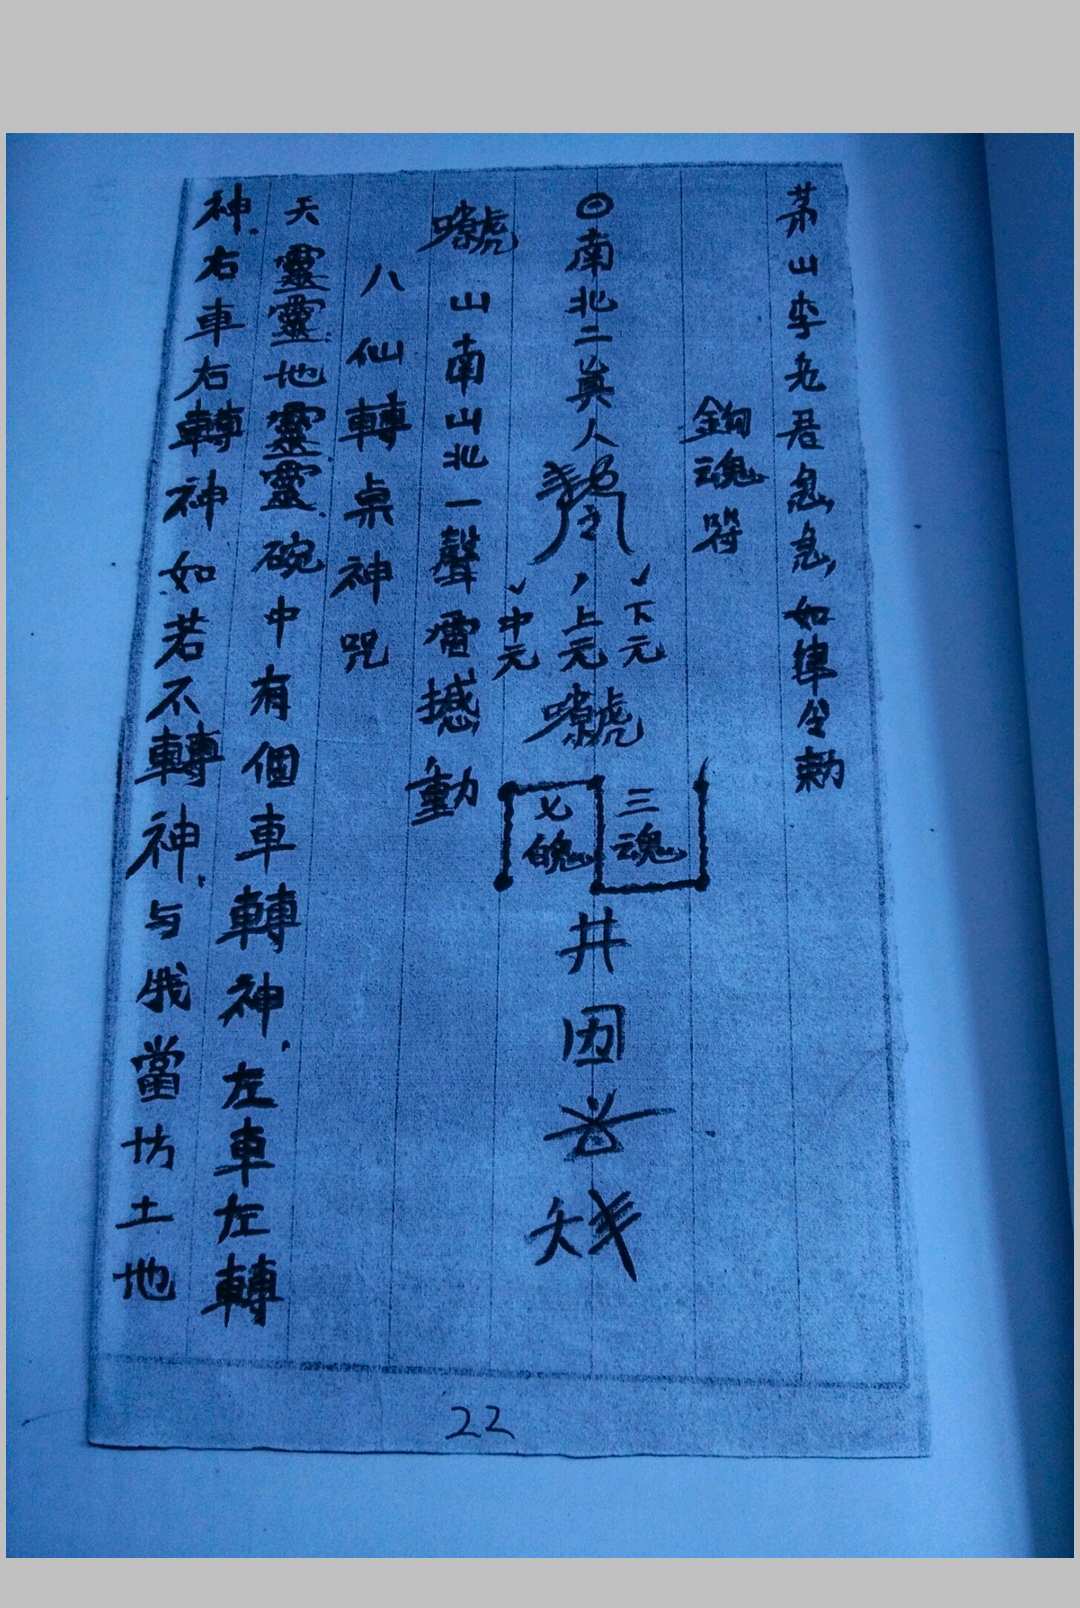 茅山李老君急急如律令勅
鉤魂符
◎南北二真人
下元
上元
中元
三魂
七魄
井
山南山北一聲雷撼動
八仙轉桌神咒
天靈靈地靈靈碗中有個車轉神,左車左轉
神,右車右轉神如若不轉神,与俄當坊土地
22